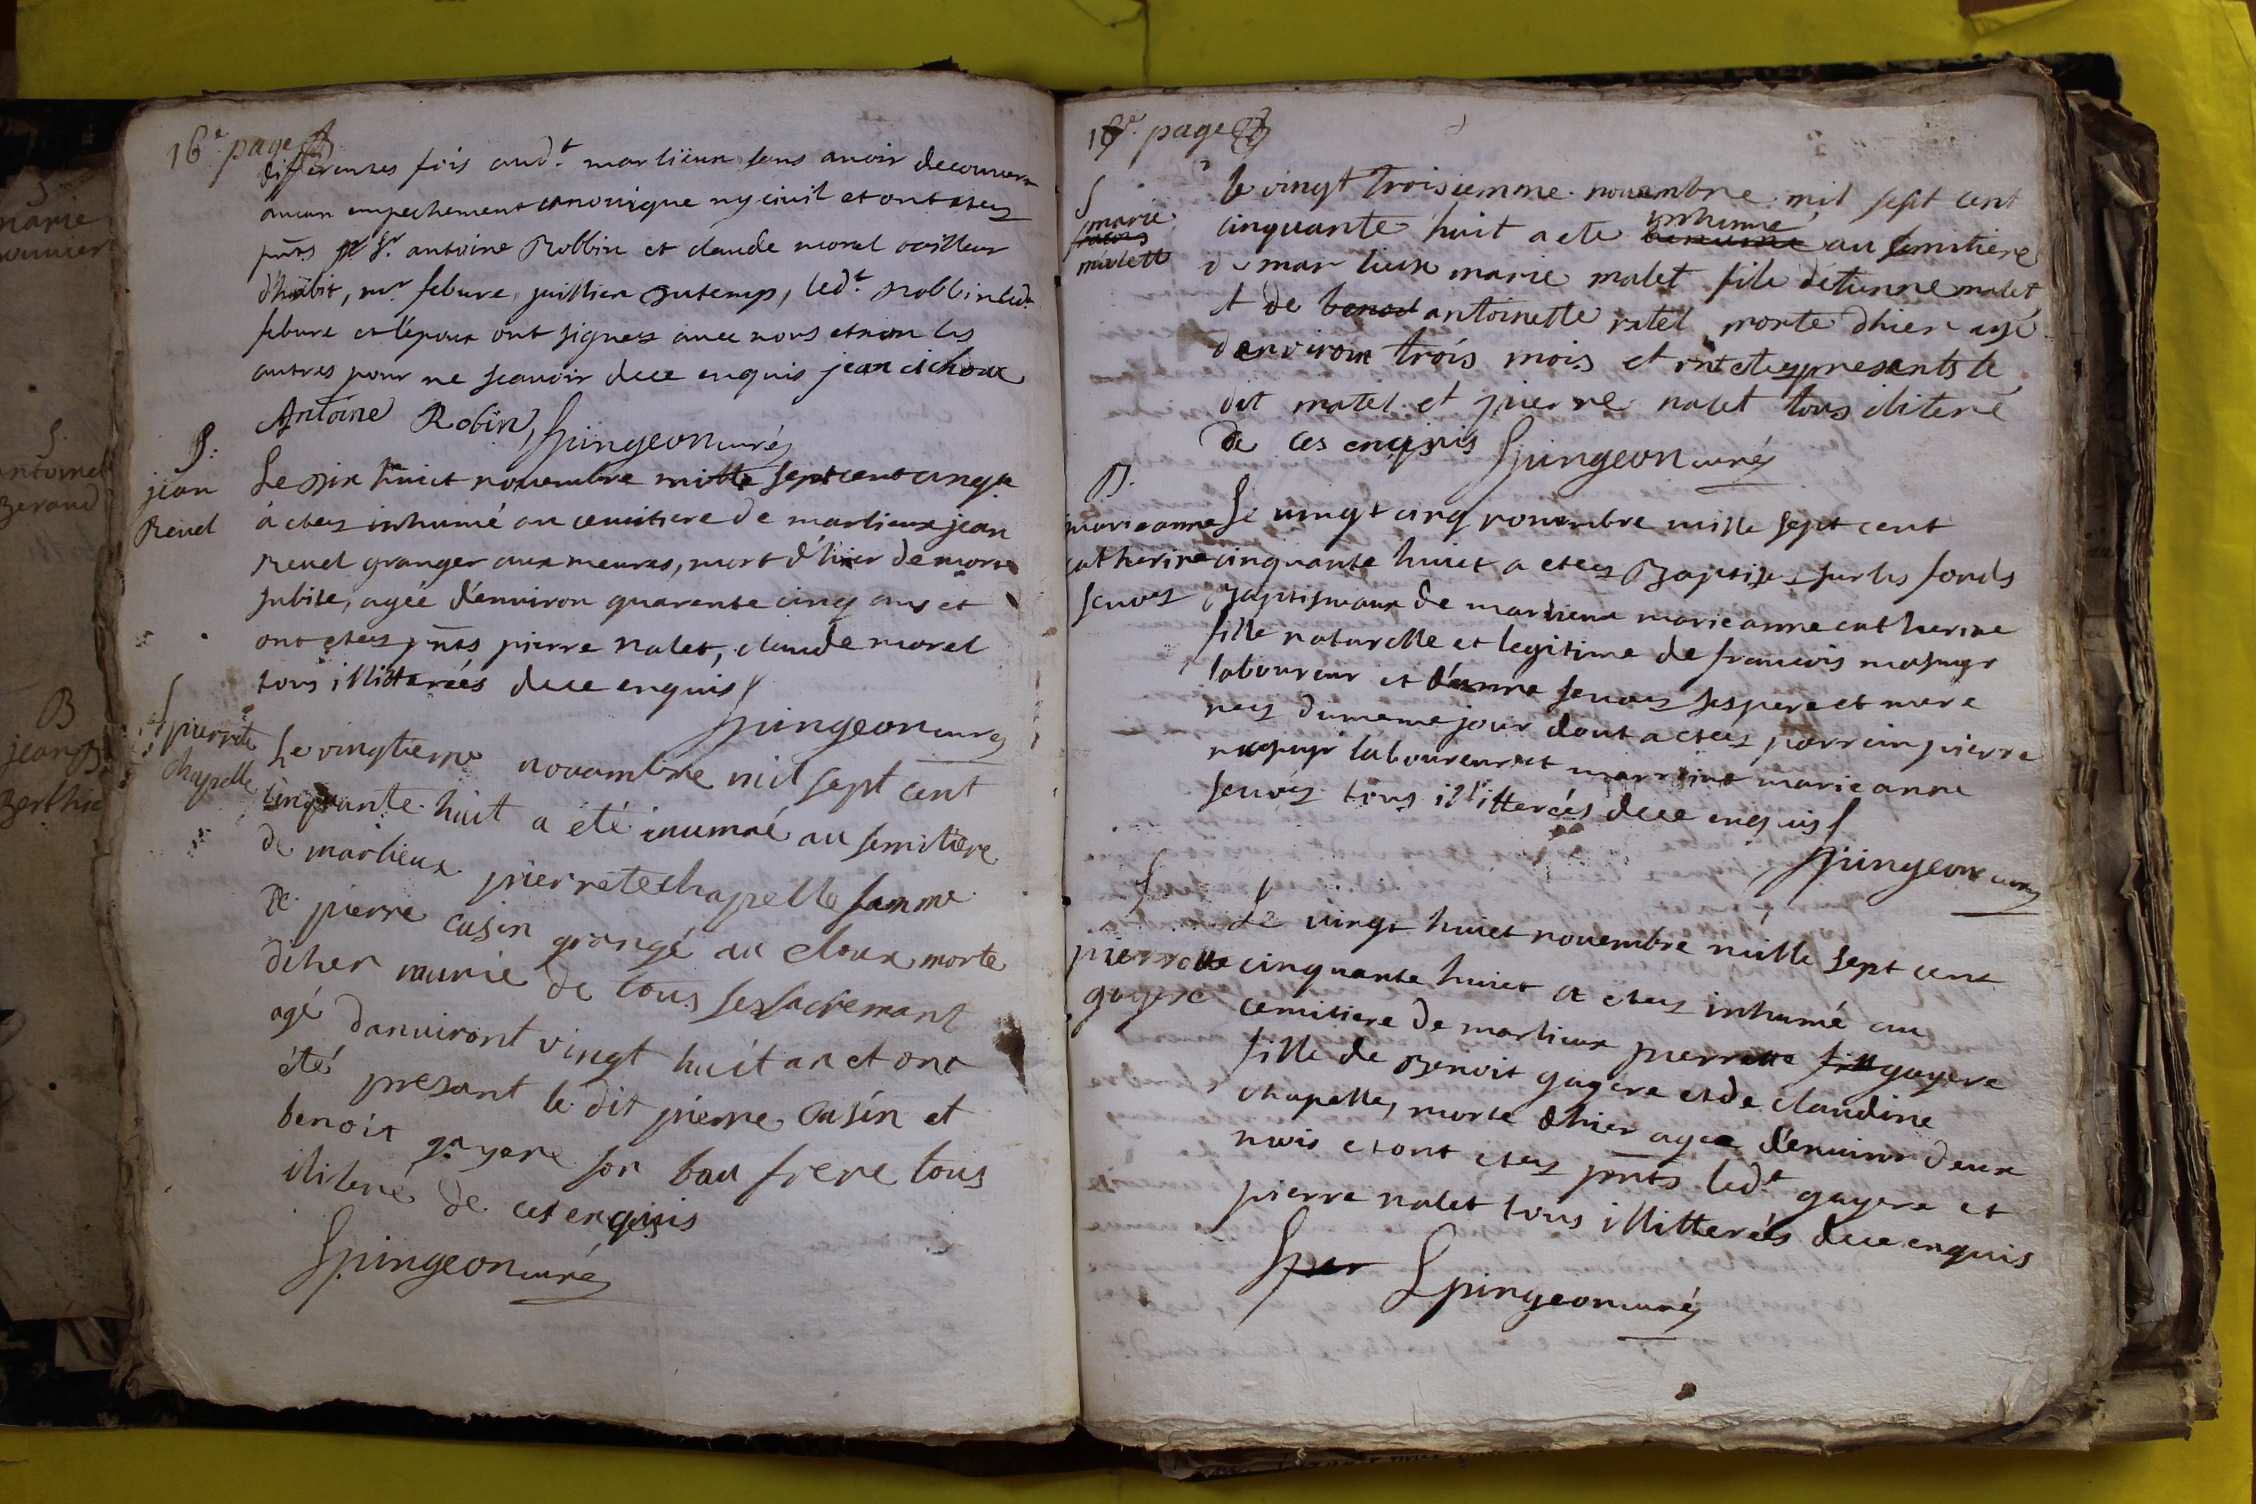 16e page
differentes fois aud.t marlieux sans avoir decouvert
aucun empechement canonique ny civil et ont etez
pnts sr. antoine Robbin et claude morel tailleur
d'habit, mr. febure, juillien dutemp, led.t robbin led.t
febure et l'epoux ont signez avec nous et non les
autres pour ne scavoir dece enquis jean cichoux
Antoine Robin, Spingeon curé
S:
jean
Revel
Le dix huict novembre mille sept cent cinq.te
a etez inhumé au cemitiere de marlieux jean
Revel granger aux meures, mort d'hier de mort
subite, agée d'environ quarente cinq ans et
ont etez pnts pierre nalet, claude morel
tous illitterés dece enquis
Spingeon curé
S
pierrete
chapelle
Le vingtieme novambre mil sept cent
cinquante huit a eté inumaé au semitiere
de marlieux pierrete chapelle famme
de pierre cusin grangé au cloux morte
diher munie de tous ses sacremant
agé danviront vingt huit an et ont
été presant le dit pierre cusin et
benoit gayere son bau frere tous
iliteré de ces enquis
Spingeon curé
17e page
S
marie
malett
le vingt troisiemme novembre mil sept cent
cinquante huit a ete inhumé au semitiere
de marlieux marie malet file detienne malet
et de antoinette ratel morte dhier agé
denviron trois mois et ont etez presents le
dit malet et pierre nalet tous iliteré
de ces enquis Spingeon curé
B.
marieanne
catherine
seuvez
Le vingt cinq novembre mille sept cent
cinquante huict a etez Baptisez sur les fonds
Baptismaux de marlieux marieanne catherine
fille naturelle et legitime de francois mapuyr
laboureur et d'anne seuvez ses pere et mere
nez du meme jour dont a etez parrein pierre
mapuyr laboureur et marreine marieanne
seuvez tous illitterées dece enquis
Spingeon curé
S
pierrette
gayere
Le vingt huict novembre mille sept cent
cinquante huict a etez inhumé au
cemitiere de marlieux pierrette gayere
fille de Benoit gayere et de claudine
chapelle, morte d'hier agee d'environ deux
mois et ont etez pnts led.t gayere et
pierre nalet tous illitterés dece enquis
Spingeon curé
S
marie
S.
antoinet
Beraud
B
jean B
Berthie